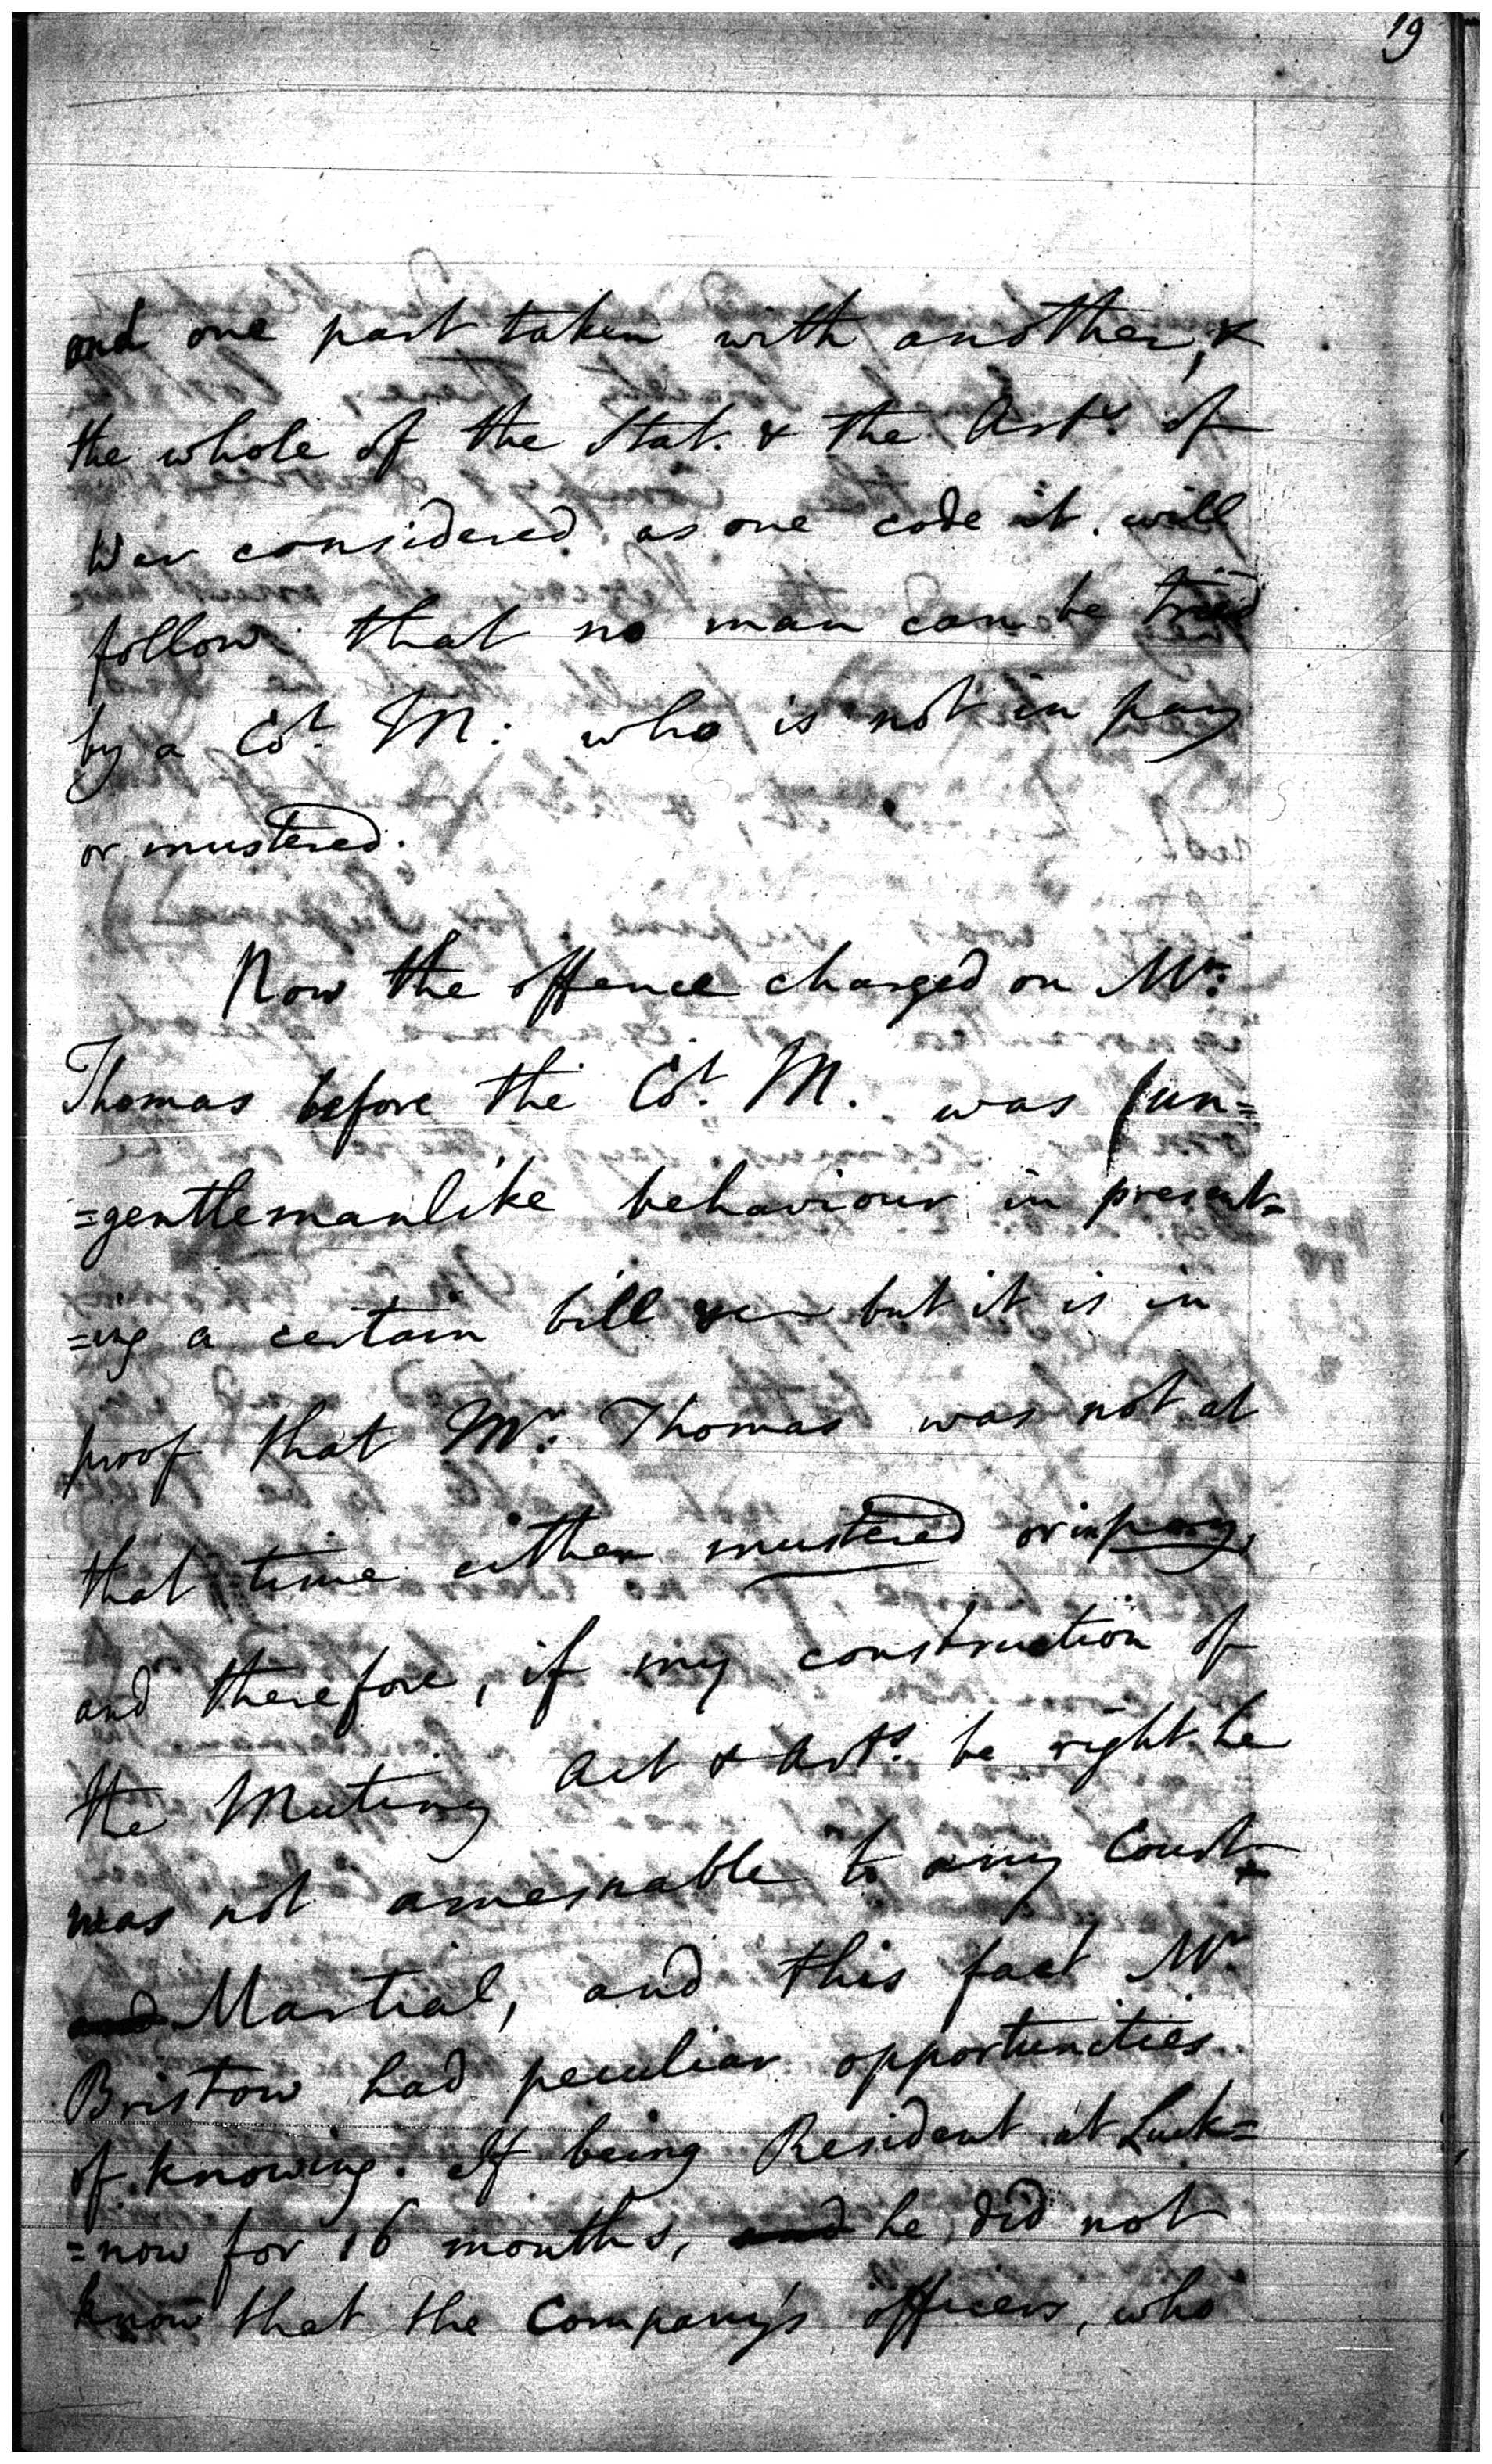 19
and one part taken with another, &
the whole of the Stat. & the Art.s of
War considered as one code it will
follow that no man can be tried
by a Ct. M: who is not in pay
or mustered.
Now the offence charged on Mr:
Thomas before the Ct. M. was (un=
=gentlemanlike behaviour in present=
=ing a certain bill &c but it is in
proof that Mr. Thomas was not at
that time either mustered or in pay,
and therefore, if my construction of
the Mutiny Act & Arts. be right he
was not amesnable to any Court
Martial, and this fact Mr.
Bristow had peculiar opportunities
of knowing. If being Resident at Luck=
=now for 16 months, he did not
know that the Company's officers, who